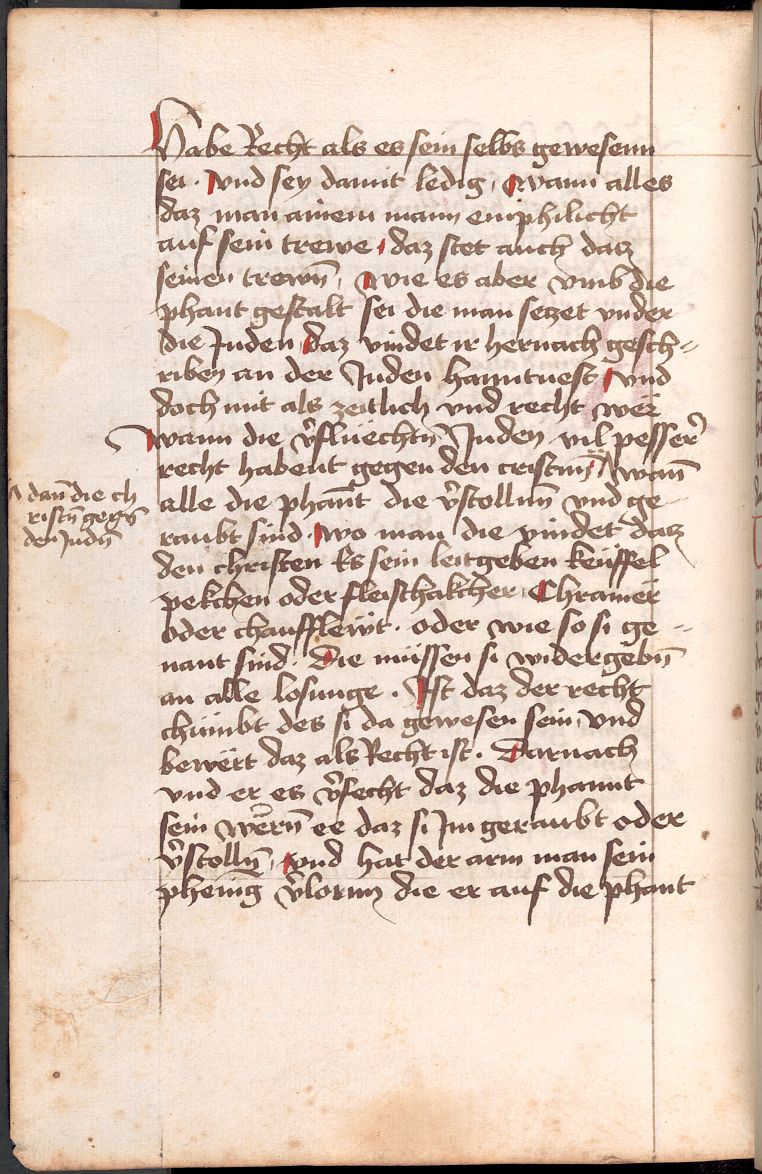 Habe Recht als es sein selbs gewesenn
sei . Vnd sey damit ledig , wann alles
daz man ainem mann emphilicht
auf sein trewe , daz stet auch datz
seinen trewn̄ , wie es aber vmb die
phant gestalt sei die man setzet vnder
die Juden daz vindet ir hernach gesch=
riben an der Juden hanntuest vnd
doch nit als zeitlich vnd recht wër
wann die v̄flüechtn̄ Juden vil pesser̄
recht habent gegen den cristnn̄ wan̄
dan̄ die ch
ristn̄ gegn̄
den Judn̄
alle die phan̄t die v̄stollnn̄ vnd ge
raubt sind . wo man die vindet datz
den christen Es sein leitgeben keüffel
pekchen oder fleischakcher , Chramër
oder chaufflewt . oder wie so si ge =
nant sind . Die müssen si widergebn̄
an alle losunge . Ist daz der recht
chümbt des si da gewesen sein , vnd
bewërt daz als Recht ist . Darnach
vnd er es v̄secht daz die phannt
sein wërn̄ ee daz si Im geraubt oder
v̄stolln̄ , vnd hat der arm man sein
phenīg v̄lornn die er auf die phant